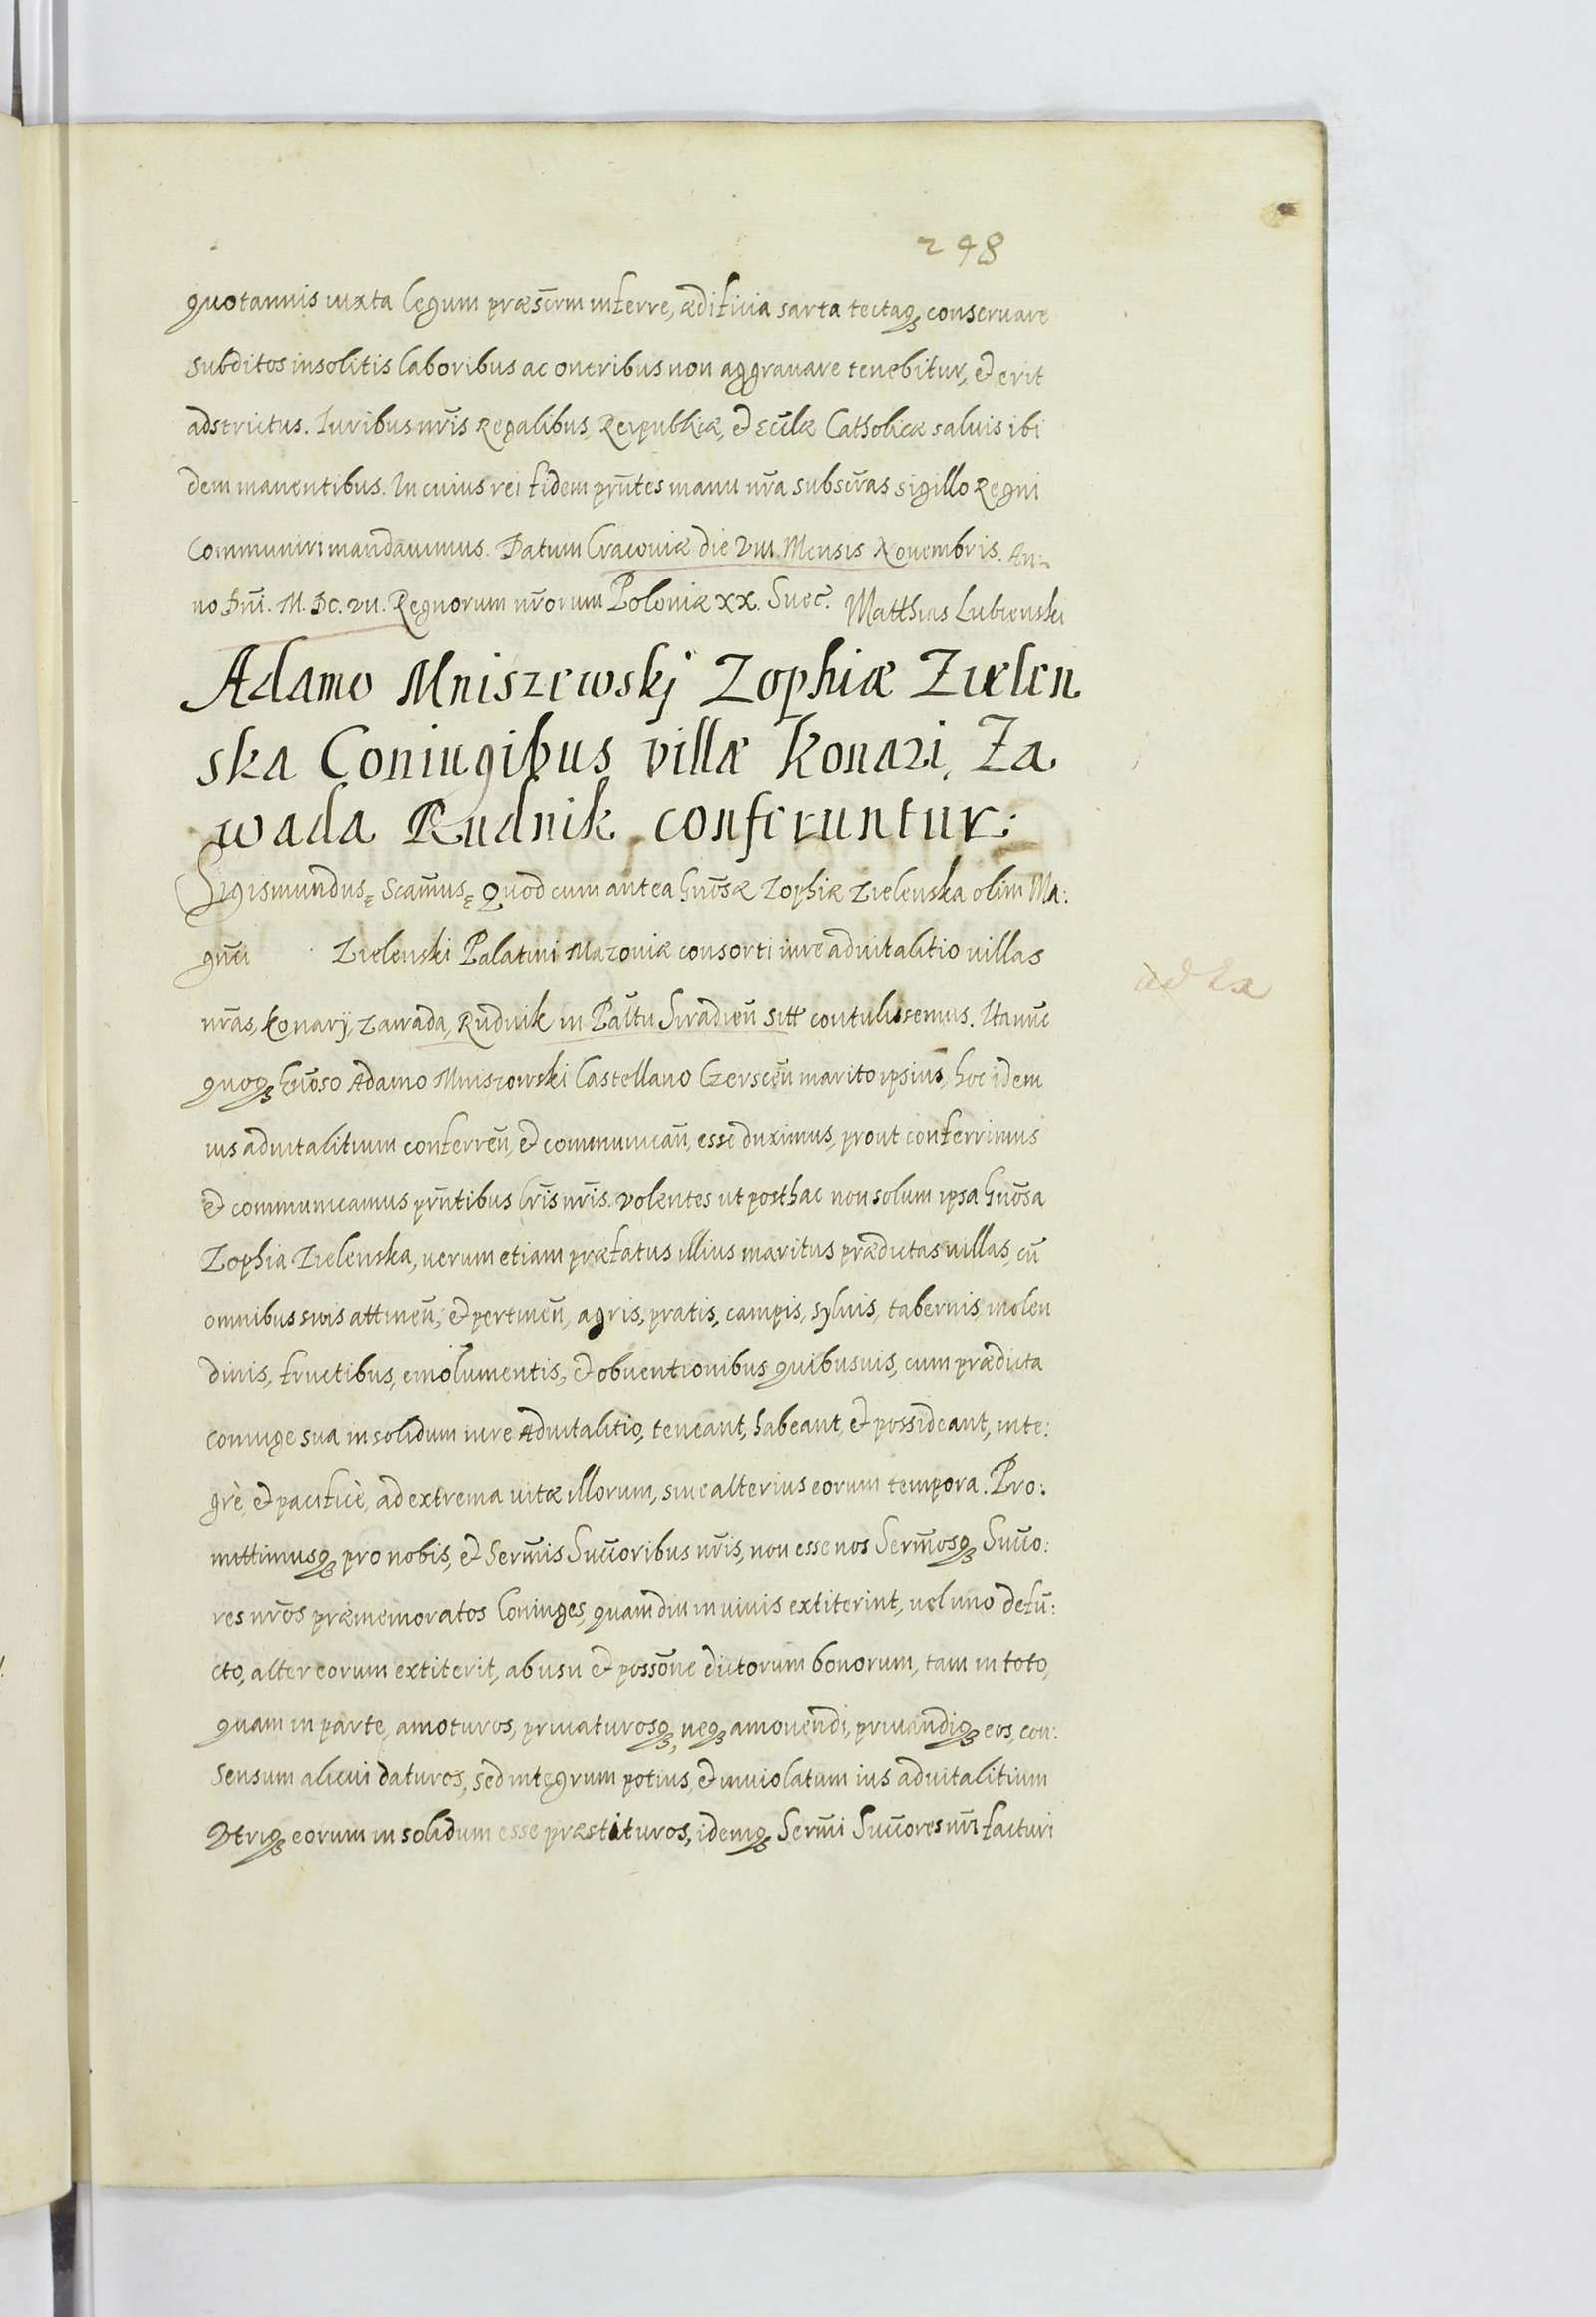 248
quotannis iuxta legum præscrm inferre, ædificia sarta tectaq₃ conseruare
subditos insolitis laboribus ac oneribus non aggrauare tenebitur, et erit
adstrictus. Iuribus nr̄is Regalibus, Reipublicæ, et Eccl̄æ Catholicæ saluis ibi
dem manentibus. In cuius rei fidem prn̄tes manu nr̄a subscr̄as sigillo Regni
Communiri mandauimus. Datum Cracouiæ die VIII. Mensis Nouembris. An:
no Dn̄i. M. DC. VII. Regnorum nr̄orum Poloniæ XX. Suec̄. Matthias Lubienski
Adamo Mniszewskj Zophiæ Zielen
ska Coniugibus villæ Konari, Za
wada Rudnik conferuntur:
Sigismundus ę Scam̄us ę Quod cum antea Gn̄osæ Zophiæ Zielenska olim Ma:
gn̄ci Zielenski Palatini Mazouiæ consorti iure aduitalitio uillas
nr̄as, Konarÿ, Zawada, Rudnik in Pal̄tu Siradien̄ sitt contulissemus. Ita nūc
quoq₃ Gn̄oso Adamo Mniszowski Castellano Czerscen̄ marito ipsius, hoc idem
ius aduitalitium conferren̄, et communican̄, esse duximus, prout conferrimus
et communicamus prn̄tibus lr̄is nr̄is. Volentes ut posthac non solum ipsa Gn̄osa
Zophia Zielenska, uerum etiam præfatus illius maritus prædictas uillas, cū
omnibus suis attinen̄, et pertinen̄, agris, pratis, campis, syluis, tabernis, molen
dinis, fructibus, emolumentis, et obuentionibus quibusuis, cum prædicta
coniuge sua in solidum iure aduitalitio, teneant, habeant, et possideant, inte:
grè, et pacificè, ad extrema uitæ illorum, siue alterius eorum tempora. Pro:
mittimusq₃ pro nobis, et Serm̄is Succ̄oribus nr̄is, non esse nos Serm̄osq₃ Succ̄o:
res nr̄os præmemoratos Coniuges, quamdiu in uiuis extiterint, uel uno defū:
cto, alter eorum extiterit, ab usu et possōne dictorum bonorum, tam in toto,
quam in parte, amoturos, priuaturosq₃, neq₃ amouendi, priuandiq₃ eos, con:
sensum alicui daturos, sed integrum potius, et inuiolatum ius aduitalitium
Vtriq₃ eorum in solidum esse præstituros, idemq₃ Serm̄i Succ̄ores nr̄i facturi